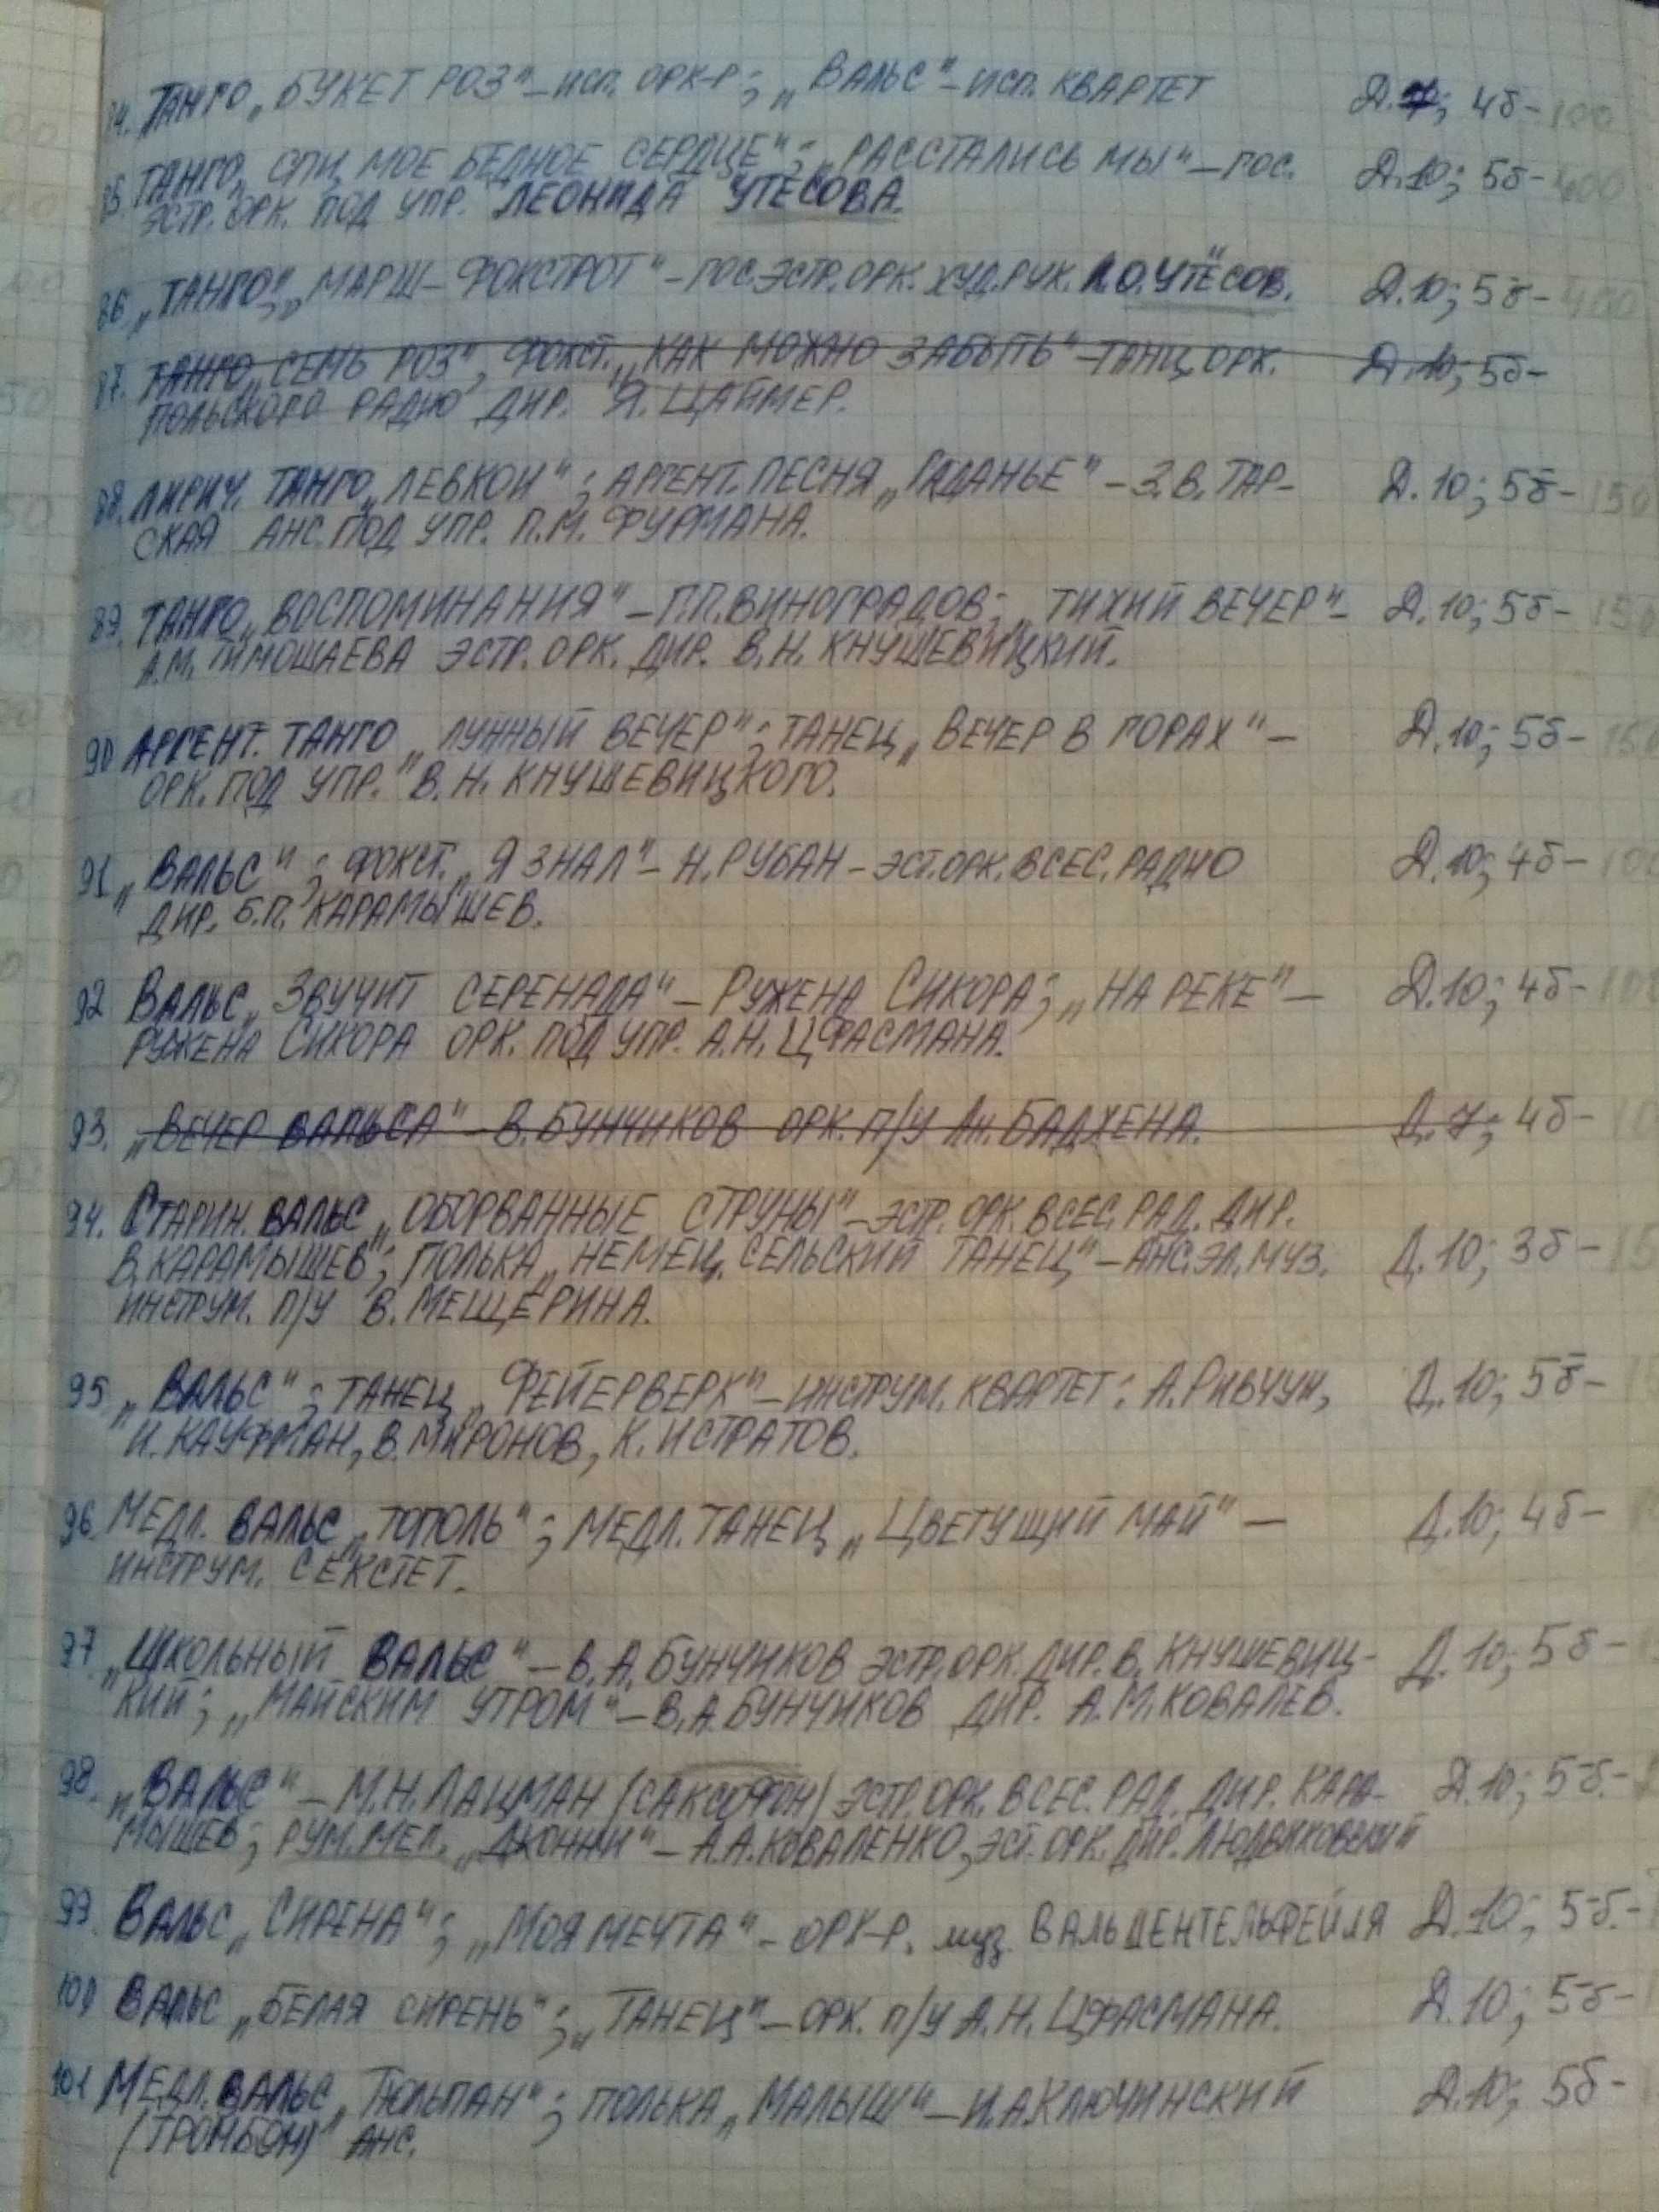 84. ТАНГО „БУКЕТ РОЗ" – ИСП. ОРК-Р; „ВАЛЬС" – ИСП. КВАРТЕТ Д. 7; 4б – 100
85. ТАНГО „СПИ, МОЕ БЕДНОЕ СЕРДЦЕ"; „РАССТАЛИСЬ МЫ" – ГОС. Д.10; 5б – 400
ЭСТР. ОРК. ПОД УПР. ЛЕОНИДА УТЕСОВА.
86 „ТАНГО"; „МАРШ – ФОКСТРОТ" – ГОС.ЭСТР.ОРК. ХУД.РУК. Л.О.УТЁСОВ. Д.10; 5б – 400
87. ТАНГО „СЕМЬ РОЗ", ФОКСТ. „КАК МОЖНО ЗАБЫТЬ" – ТАНЦ.ОРК. Д.10; 5б –
ПОЛЬСКОГО РАДИО ДИР. Я. ЦАЙМЕР.
88. ЛИРИЧ. ТАНГО „ЛЕВКОИ"; АРГЕНТ. ПЕСНЯ „ГАДАНЬЕ" – З.В. ТАР- Д. 10; 5б – 150
СКАЯ АНС. ПОД УПР. П.М. ФУРМАНА.
89. ТАНГО „ВОСПОМИНАНИЯ" – П.П.ВИНОГРАДОВ; „ТИХИЙ ВЕЧЕР" – Д.10; 5б – 150
А.М. ТИМОШАЕВА ЭСТР. ОРК. ДИР. В.Н. КНУШЕВИЦКИЙ.
90 АРГЕНТ. ТАНГО „ЛУННЫЙ ВЕЧЕР"; ТАНЕЦ „ВЕЧЕР В ГОРАХ" – Д.10; 5б – 150
ОРК. ПОД УПР. В.Н. КНУШЕВИЦКОГО.
91 „ВАЛЬС"; ФОКСТ. „Я ЗНАЛ" – Н. РУБАН – ЭСТ.ОРК. ВСЕС. РАДИО Д.10; 4б – 100
ДИР. Б.П. КАРАМЫШЕВ.
92 ВАЛЬС „ЗВУЧИТ СЕРЕНАДА" – РУЖЕНА СИКОРА; „НА РЕКЕ" – Д.10; 4б – 100
РУЖЕНА СИКОРА ОРК. ПОД УПР. А.Н. ЦФАСМАНА.
93. „ВЕЧЕР ВАЛЬСА" – В. БУНЧИКОВ ОРК. П/У Ан. БАДХЕНА. Д. 7; 4б –
94. СТАРИН. ВАЛЬС „ОБОРВАННЫЕ СТРУНЫ" – ЭСТР. ОРК. ВСЕС. РАД. ДИР.
В. КАРАМЫШЕВ; ПОЛЬКА „НЕМЕЦ. СЕЛЬСКИЙ ТАНЕЦ" – АНС.ЭЛ.МУЗ. Д.10; 3б –
ИНСТРУМ. П/У В. МЕЩЕРИНА.
95 „ВАЛЬС"; ТАНЕЦ „ФЕЙЕРВЕРК" – ИНСТРУМ. КВАРТЕТ: А. РИВЧУН, Д.10; 5б –
И. КАУФМАН, В. МИРОНОВ, К. ИСТРАТОВ.
96 МЕДЛ. ВАЛЬС „ТОПОЛЬ"; МЕДЛ. ТАНЕЦ „ЦВЕТУЩИЙ МАЙ" – Д.10; 4б –
ИНСТРУМ. СЕКСТЕТ.
97 „ШКОЛЬНЫЙ ВАЛЬС" – В.А. БУНЧИКОВ ЭСТР.ОРК. ДИР. В. КНУШЕВИЦ- Д. 10; 5б –
КИЙ; „МАЙСКИМ УТРОМ" – В.А. БУНЧИКОВ ДИР. А.М. КОВАЛЕВ.
98. „ВАЛЬС" – М.Н. ЛАЦМАН (САКСОФОН) ЭСТР.ОРК. ВСЕС. РАД. ДИР. КАРА- Д.10; 5б. –
МЫШЕВ; РУМ.МЕЛ. „ДЖОННИ" – А.А. КОВАЛЕНКО, ЭСТ. ОРК. ДИР. ЛЮДВИКОВСКИЙ
99. ВАЛЬС „СИРЕНА"; „МОЯ МЕЧТА" – ОРК-Р. муз. ВАЛЬДЕНТЕЛЬФЕЙЛЯ Д.10; 5б. –
100 ВАЛЬС „БЕЛАЯ СИРЕНЬ"; „ТАНЕЦ" – ОРК. П/У А.Н. ЦФАСМАНА. Д.10; 5б –
101 МЕДЛ. ВАЛЬС „ТЮЛЬПАН"; ПОЛЬКА „МАЛЫШ" – И.А.КЛЮЧИНСКИЙ Д.10; 5б –
(ТРОМБОН) АНС.